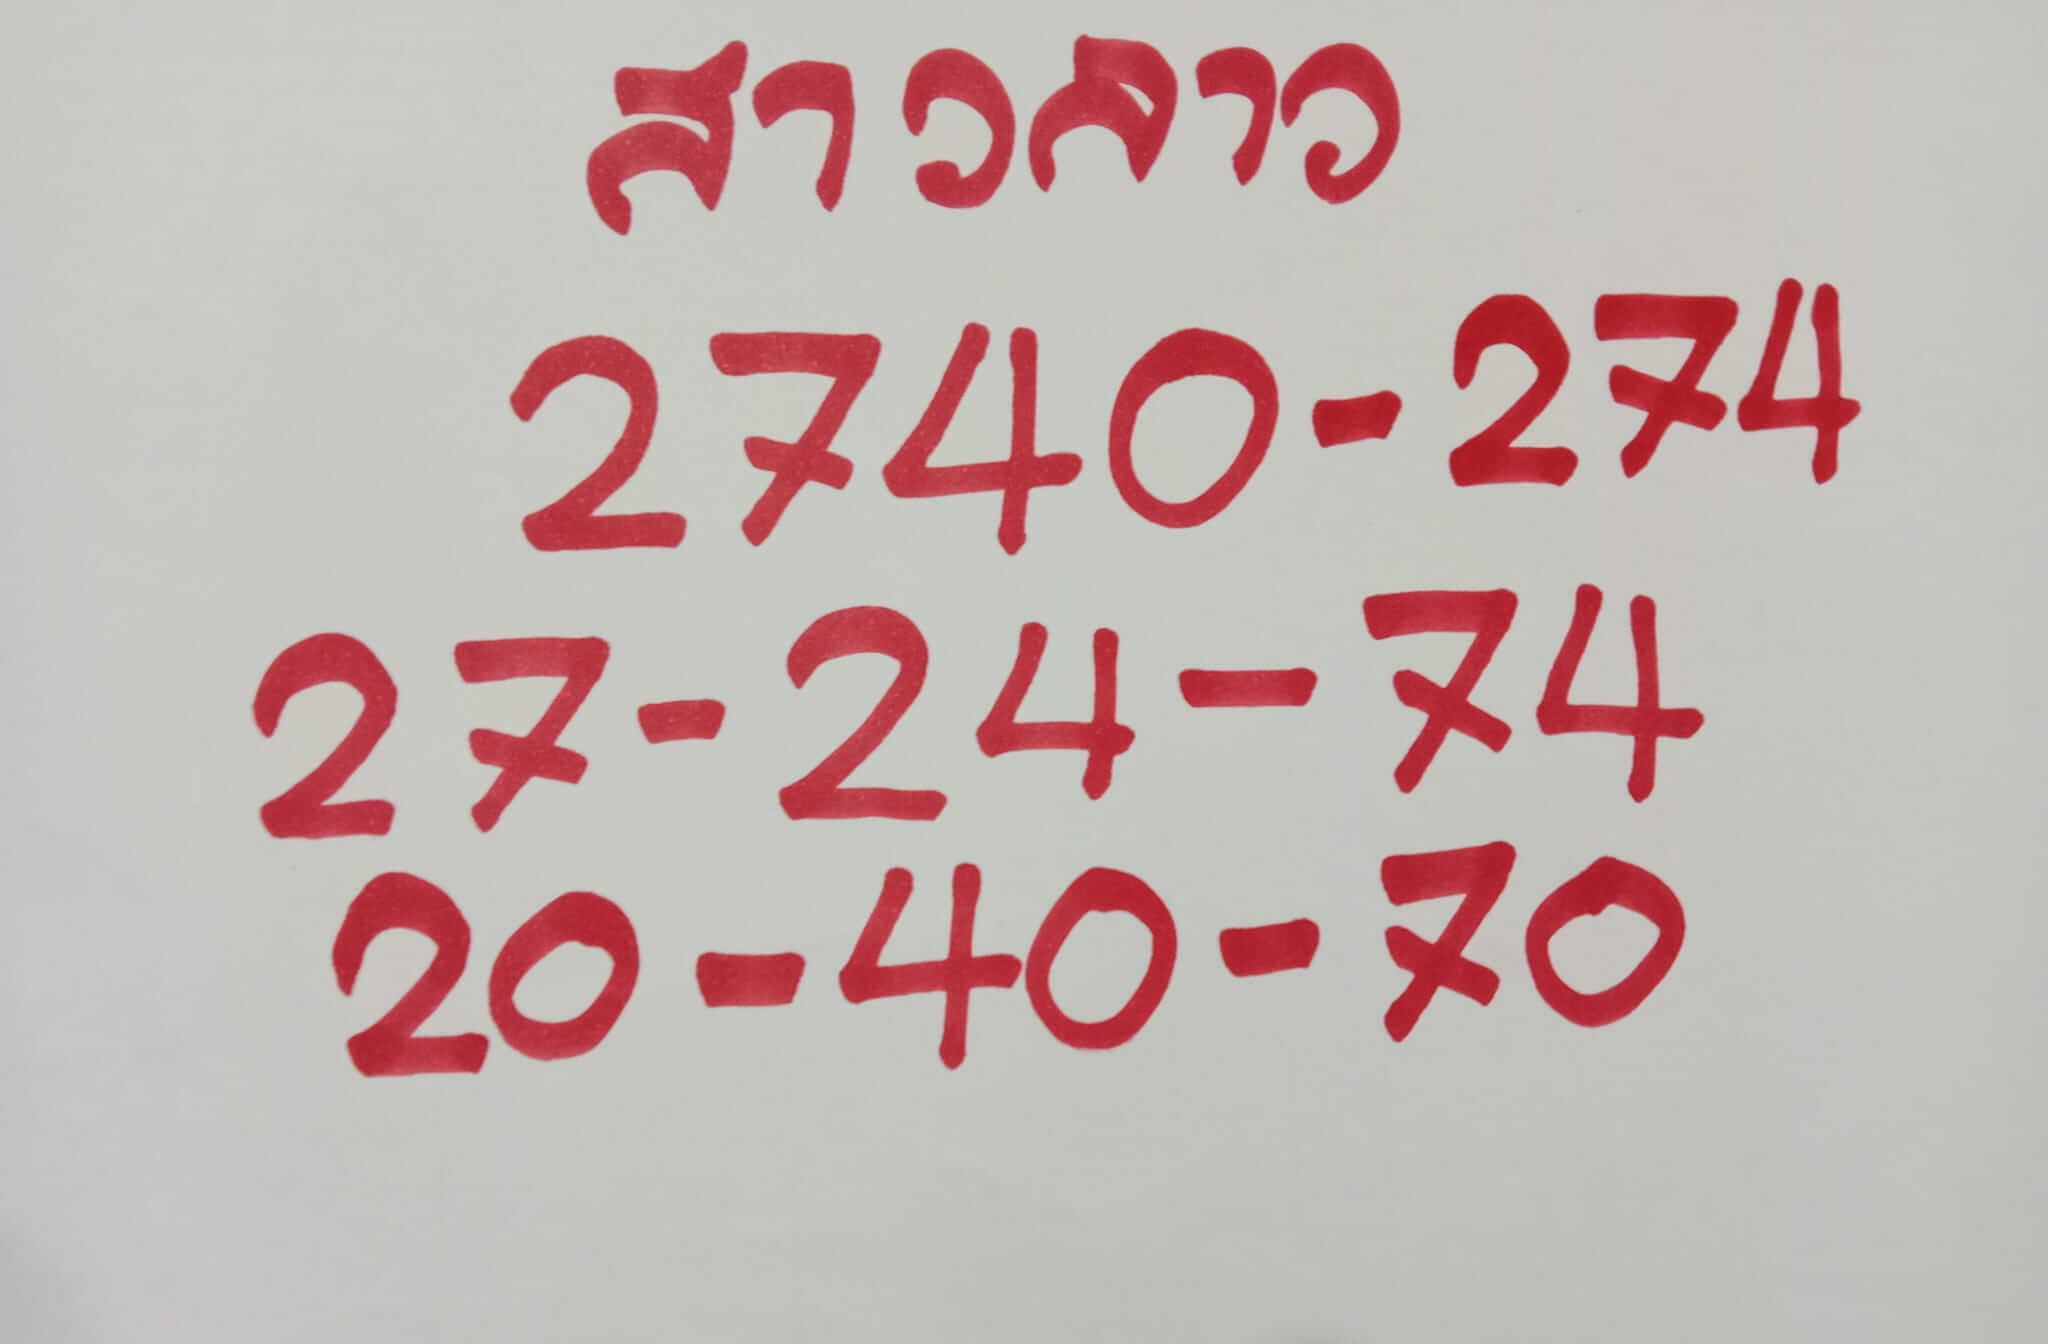 สาวลาว
2740-274
27-24-74
20-40-70